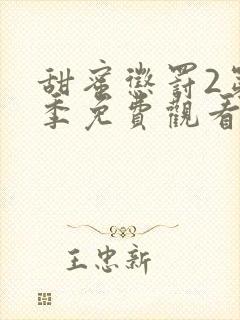 甜蜜懲罰2第
季免費觀看
王忠新